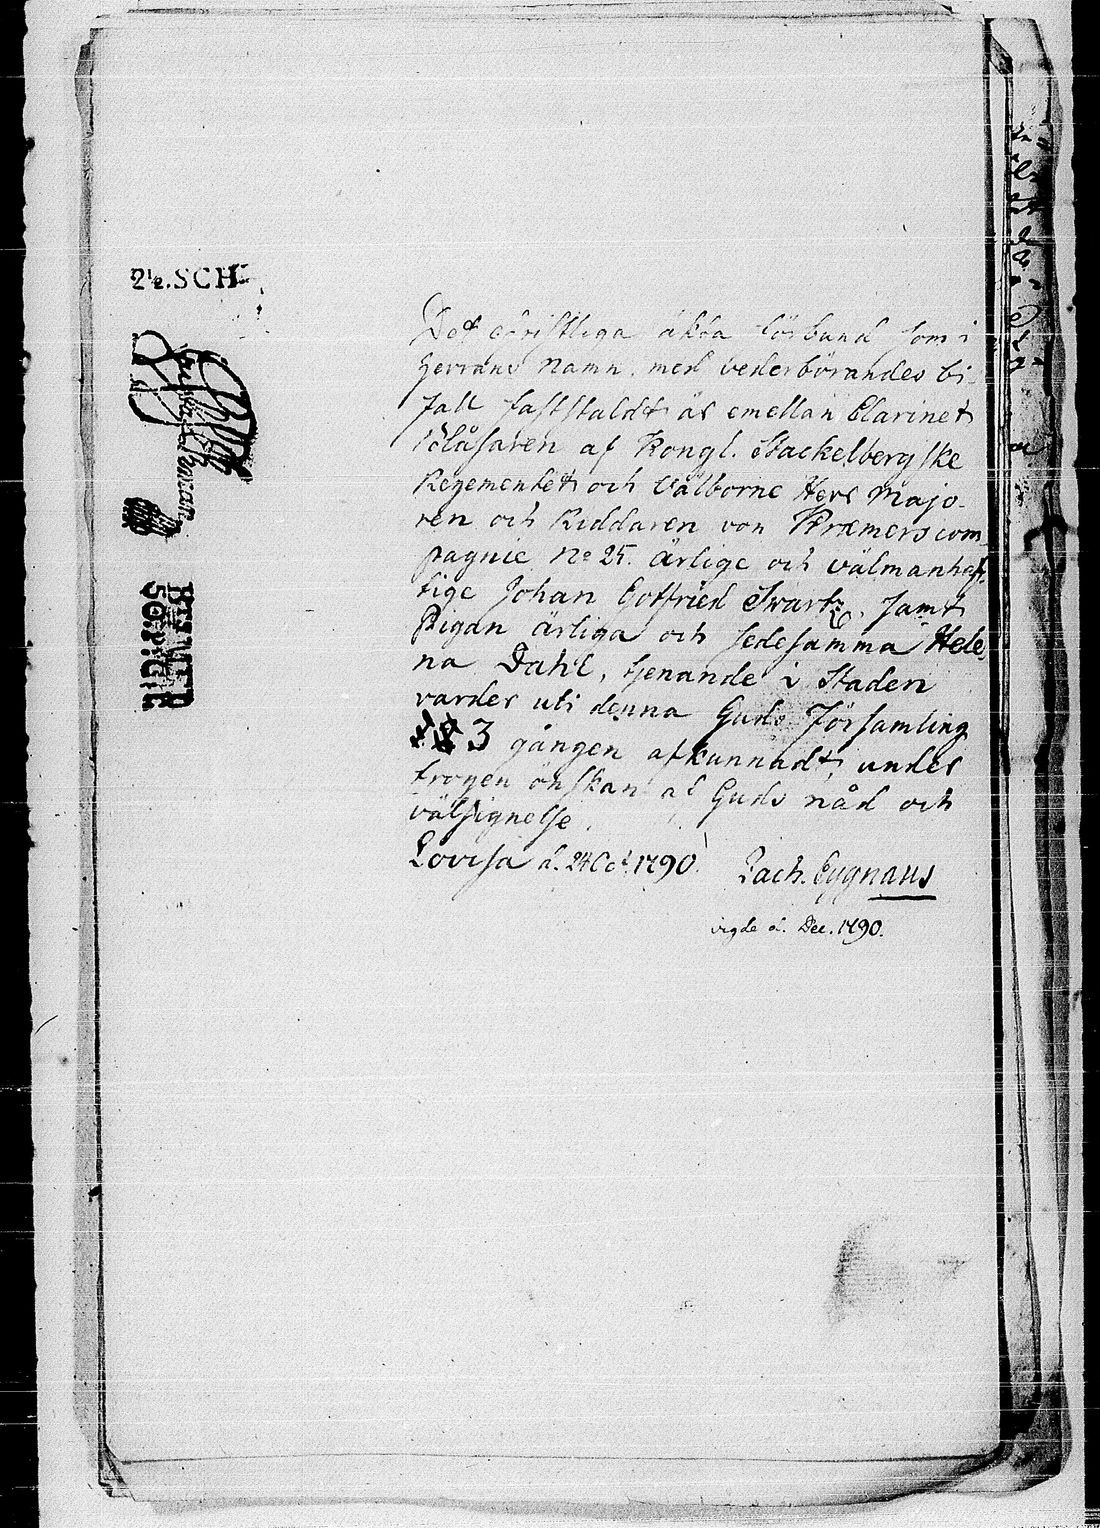 2½.SCH
Det christliga äkta förbund som i
Herrans Namn, med vederbörandes bi-
fall faststäldt är emellan Clarinet
Blåsaren af Kongl. Stackelbergske
Regementet och Välborne Herr Majo-
ren och Riddaren von Kræmers com-
pagnie No 25. ärlige och välmanhaf-
tige Johan Gotfried Swartz, samt
Pigan ärliga och sedesamma Hele-
na Dahl, tjenande i Staden
varder uti denna Guds Församling
3 gången afkunnadt, under
trogen önskan af Guds nåd och
välsignelse.
Lovisa d. 24 Oct. 1790. Zach. Cygnæus
vigde d. Dec. 1790.